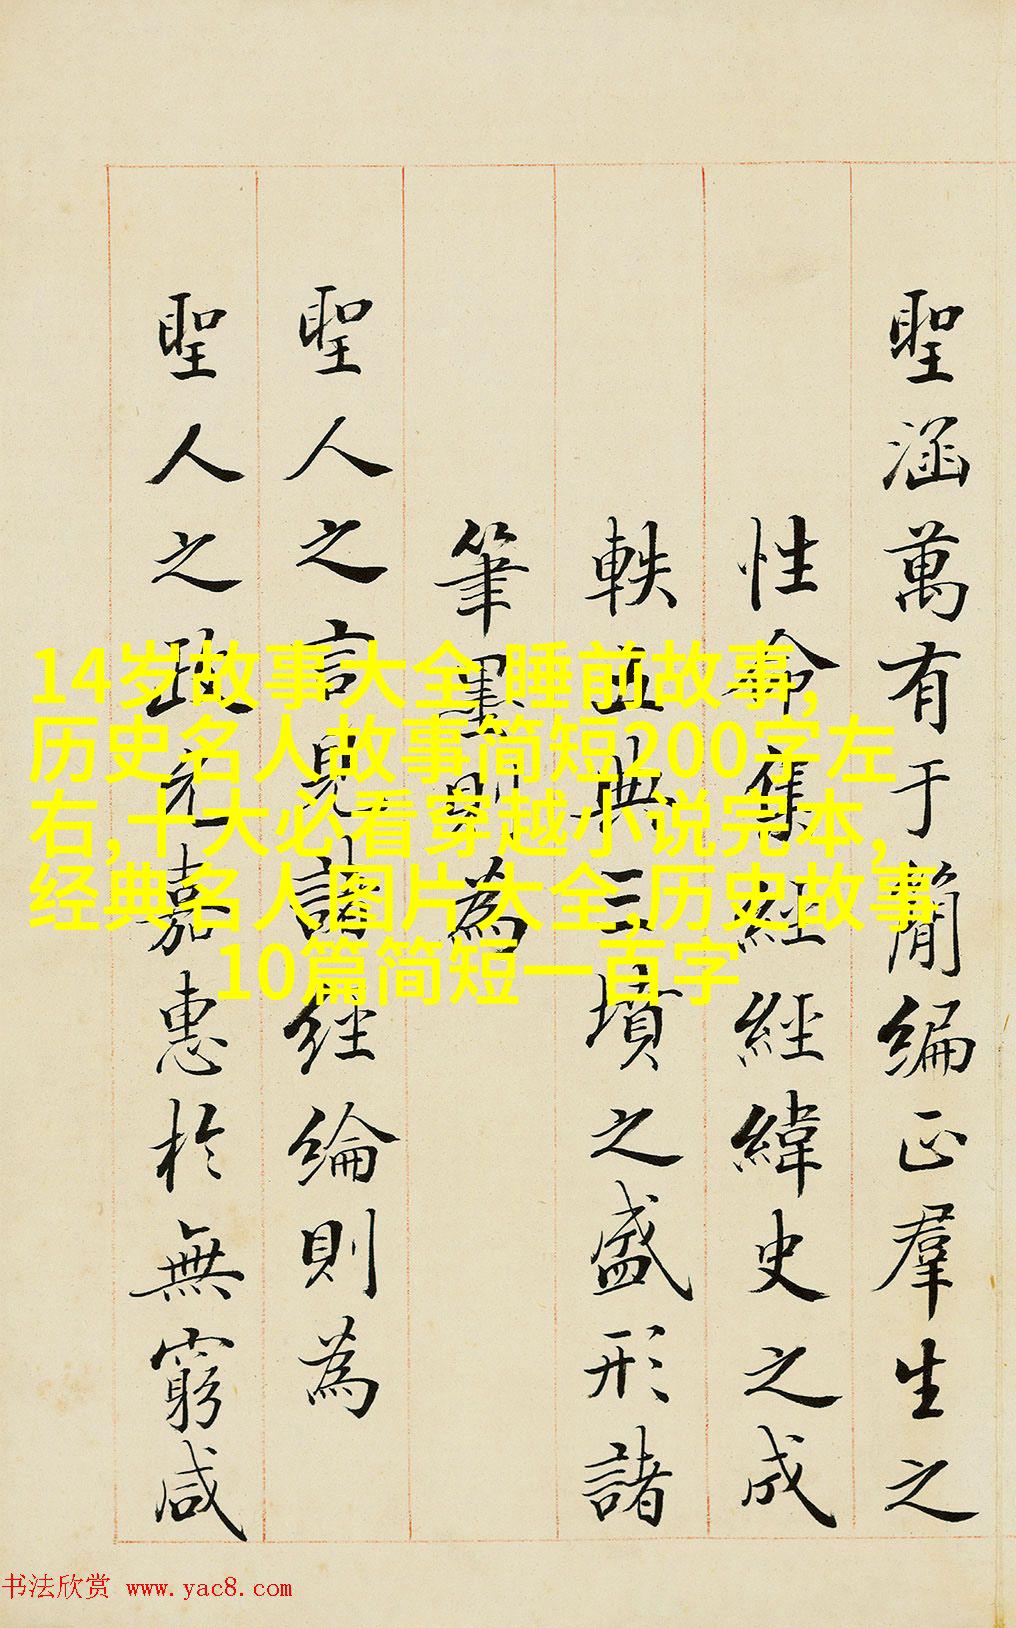 聖涵萬有于簡編正羣生之
性命集經經緯史之成
軼五典三墳之盛形諸
筆墨則為
聖人之言見諸經綸則為
聖人之政光嘉惠於無窮咸
14岁故事大全 睡前故事,
历史名人故事简短200字左
右,十大必看穿越小说完本,
经典名人图片大全,历史故事
10篇简短一百字
书法欣赏 www.yac8.com